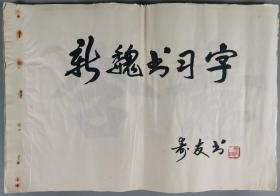 新魏书习字
寿友书